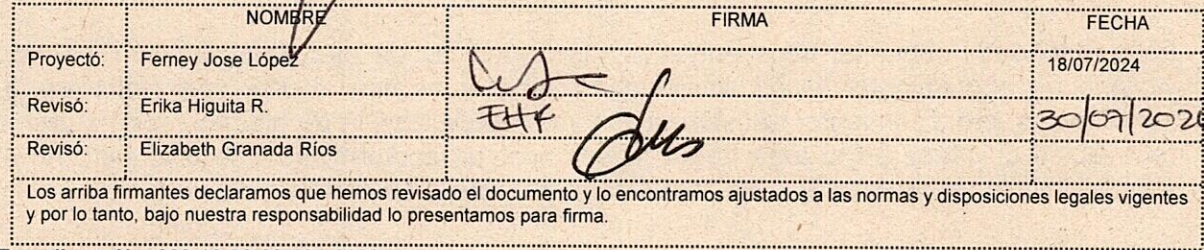 NOMBRE FIRMA FECHA
Proyectó: Ferney Jose López 18/07/2024
Revisó: Erika Higuita R. EHR
Revisó: Elizabeth Granada Ríos
Los arriba firmantes declaramos que hemos revisado el documento y lo encontramos ajustados a las normas y disposiciones legales vigentes
y por lo tanto, bajo nuestra responsabilidad lo presentamos para firma.